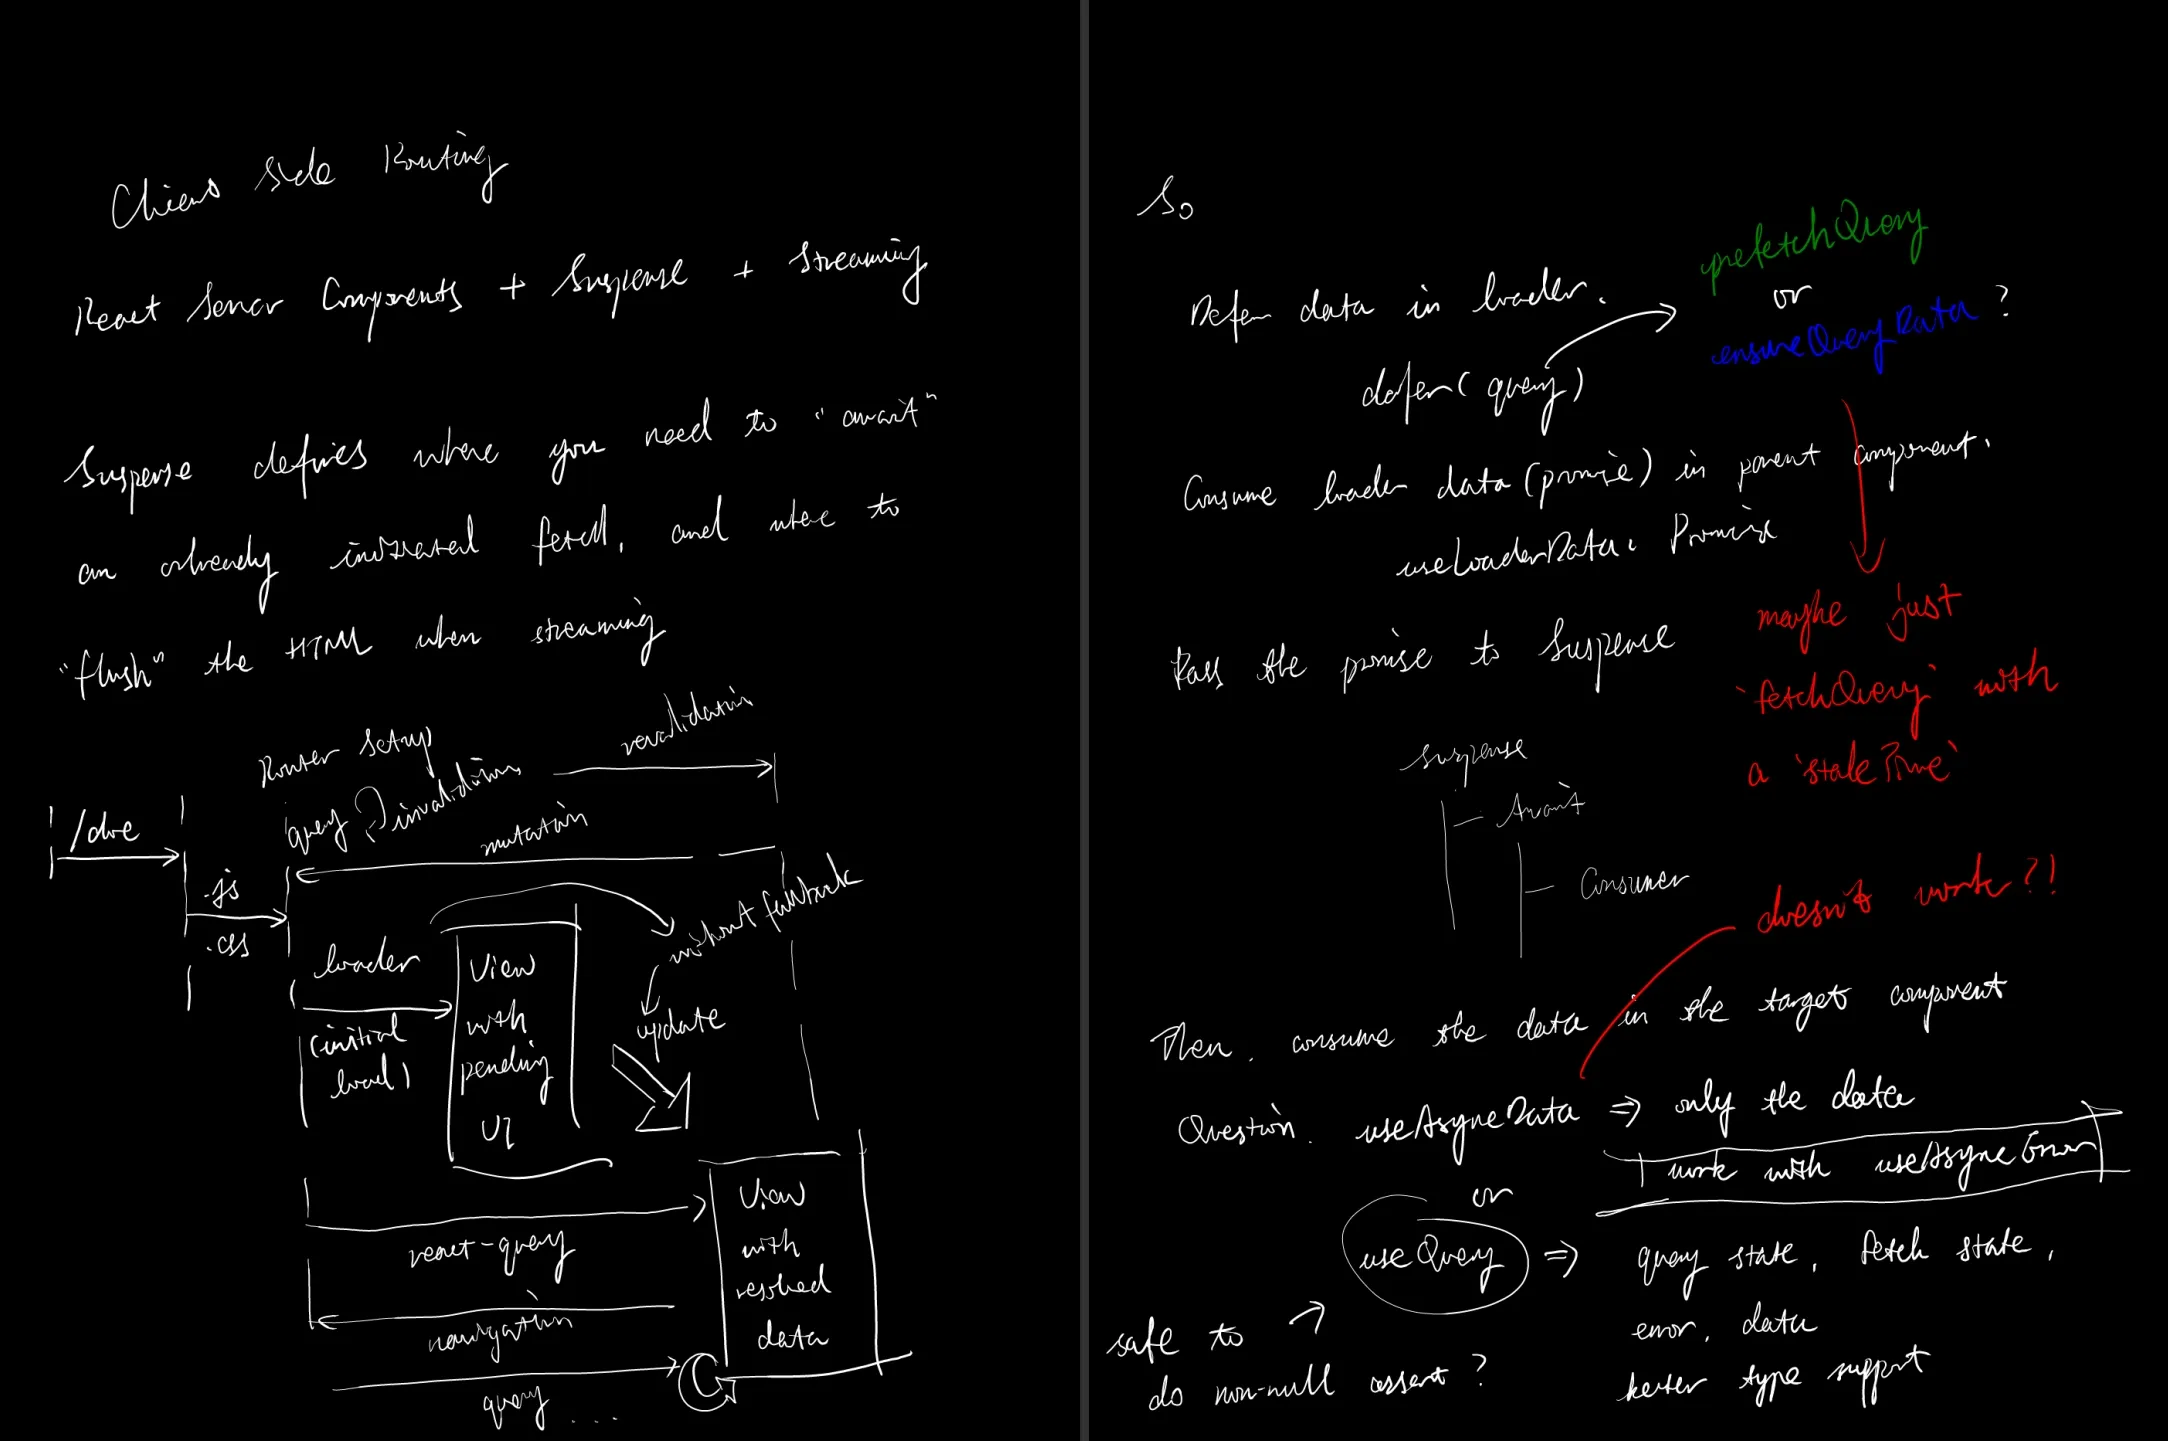 Client Side Routing
React Server Components + Suspense + Streaming
Suspense defines where you need to "await"
an already initiated fetch, and where to
"flush" the HTML when streaming
Router Setup
revalidation
query invalidation
mutation
/doc
.js
.css
without fallback
loader
(initial
load)
View
with
pending
UI
update
react-query
navigation
query ...
View
with
resolved
data
So
Defer data in loader.
prefetchQuery
or
ensureQueryData ?
defer(query)
Consume loader data (promise) in parent component.
useLoaderData: Promise
Pass the promise to Suspense
maybe just
`fetchQuery` with
a `staleTime`
Suspense
Await
Consumer
doesn't work?!
Then, consume the data in the target component
Question. useAsyncData ⇒ only the data
work with useAsyncError
or
useQuery ⇒ query state, fetch state,
error, data
better type support
safe to
do non-null assert?